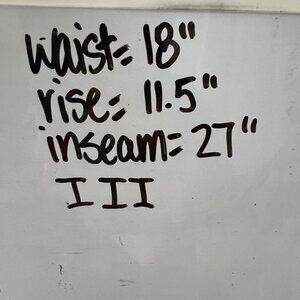 waist= 18"
rise= 11.5"
inseam= 27"
I I I